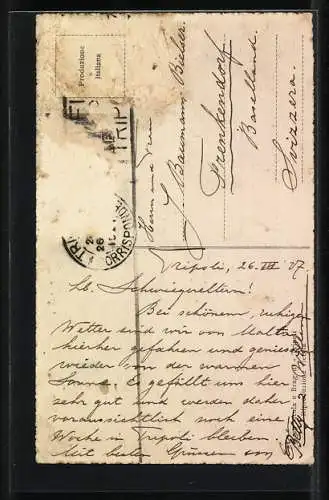 Produzione
italiana
TRIPO
TRI
26
CORRISPOND
Herrn und Frau
J. Baumann-Bieler
Frenkendorf
Baselland.
Svizzera.
Tripoli, 26. III 37
Lb. Schwiegereltern!
Bei schönem, ruhigen
Wetter sind wir von Malta
hierher gefahren und geniessen
wieder von der warmen
Sonne. Es gefällt uns hier
sehr gut und werden daher
voraussichtlich noch eine
Woche in Tripoli bleiben.
Mit besten Grüssen von